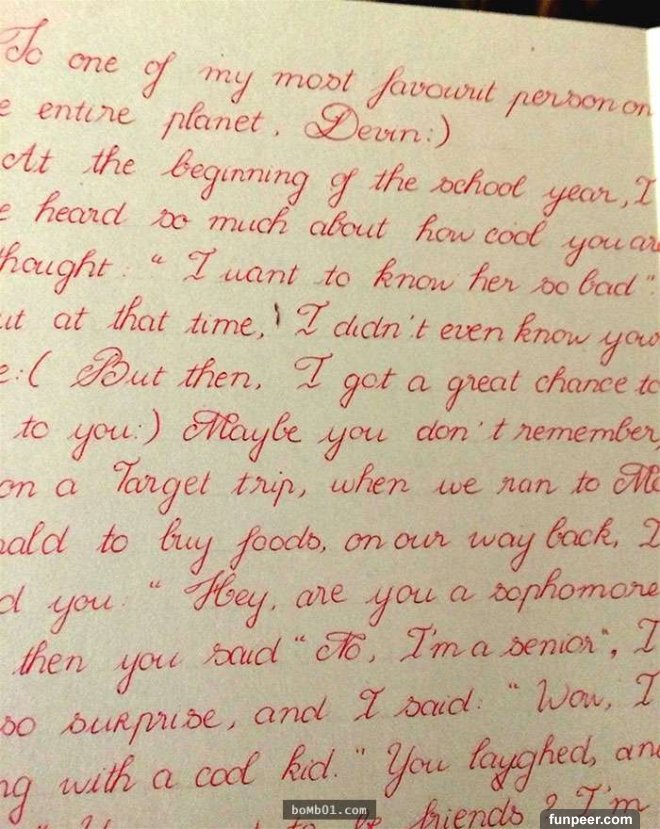 To one of my most favourit person on
e entire planet, Devin:)
At the beginning of the school year, I
e heard so much about how cool you are
hought: "I want to know her so bad".
ut at that time, I didn't even know you
e:( But then, I got a great chance to
to you:) Maybe you don't remember,
on a Target trip, when we ran to Mc
nald to buy foods, on our way back, I
d you: "Hey, are you a sophomore
then you said "No, I'm a senior", I
so surprise, and I said: "Wow, I
ng with a cool kid." You layghed, and
to be friends? I'm
boMb01.com
funpeer.com